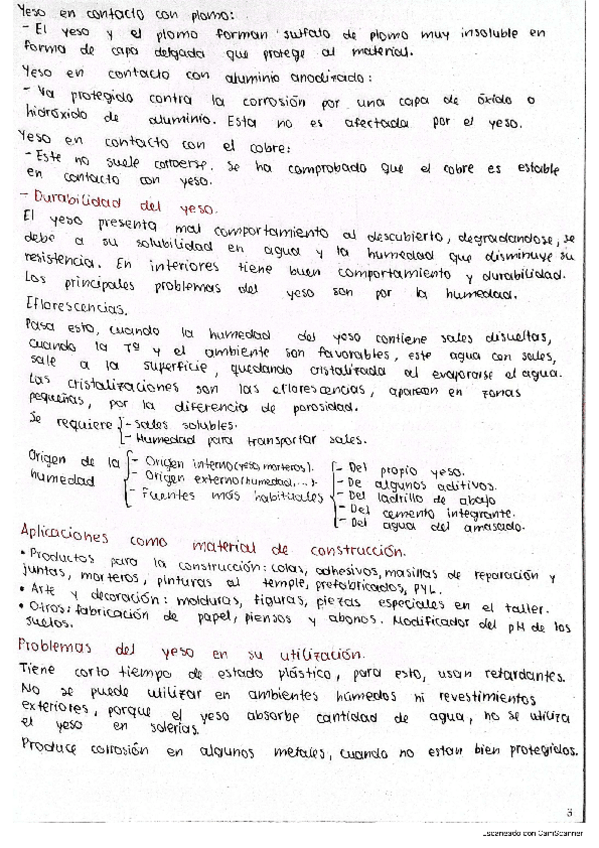 Yeso en contacto con plomo:
- El yeso y el plomo forman sulfato de plomo muy insoluble en
forma de capa delgada que protege al material.
Yeso en contacto con aluminio anodizado:
- Va protegido contra la corrosión por una capa de óxido o
hidróxido de aluminio. Esta no es afectada por el yeso.
Yeso en contacto con el cobre:
- Este no suele corroerse. Se ha comprobado que el cobre es estable
en contacto con yeso.
- Durabilidad del yeso.
El yeso presenta mal comportamiento al descubierto, degradandose, se
debe a su solubilidad en agua y la humedad que disminuye su
resistencia. En interiores tiene buen comportamiento y durabilidad.
Los principales problemas del yeso son por la humedad.
Eflorescencias.
Pasa esto, cuando la humedad del yeso contiene sales disueltas,
cuando la Tª y el ambiente son favorables, este agua con sales,
sale a la superficie, quedando cristalizada al evaporarse el agua.
Las cristalizaciones son las eflorescencias, aparecen en zonas
pequeñas, por la diferencia de porosidad.
Se requiere - Sales solubles.
- Humedad para transportar sales.
Origen de la humedad - Origen interno (yeso, morteros).
- Origen externo (humedad, ...).
- Fuentes más habituales - Del propio yeso.
- De algunos aditivos.
- Del ladrillo de abajo
- Del cemento integrante.
- Del agua del amasado.
Aplicaciones como material de construcción.
• Productos para la construcción: colas, adhesivos, masillas de reparación y
juntas, morteros, pinturas al temple, prefabricados, PYL.
• Arte y decoración: molduras, figuras, piezas especiales en el taller.
• Otros: fabricación de papel, piensos y abonos. Modificador del pH de los
suelos.
Problemas del yeso en su utilización.
Tiene corto tiempo de estado plástico, para esto, usan retardantes.
No se puede utilizar en ambientes húmedos ni revestimientos
exteriores, porque el yeso absorbe cantidad de agua, no se utiliza
el yeso en solerias.
Produce corrosión en algunos metales, cuando no estan bien protegidos.
3
Escaneado con CamScanner